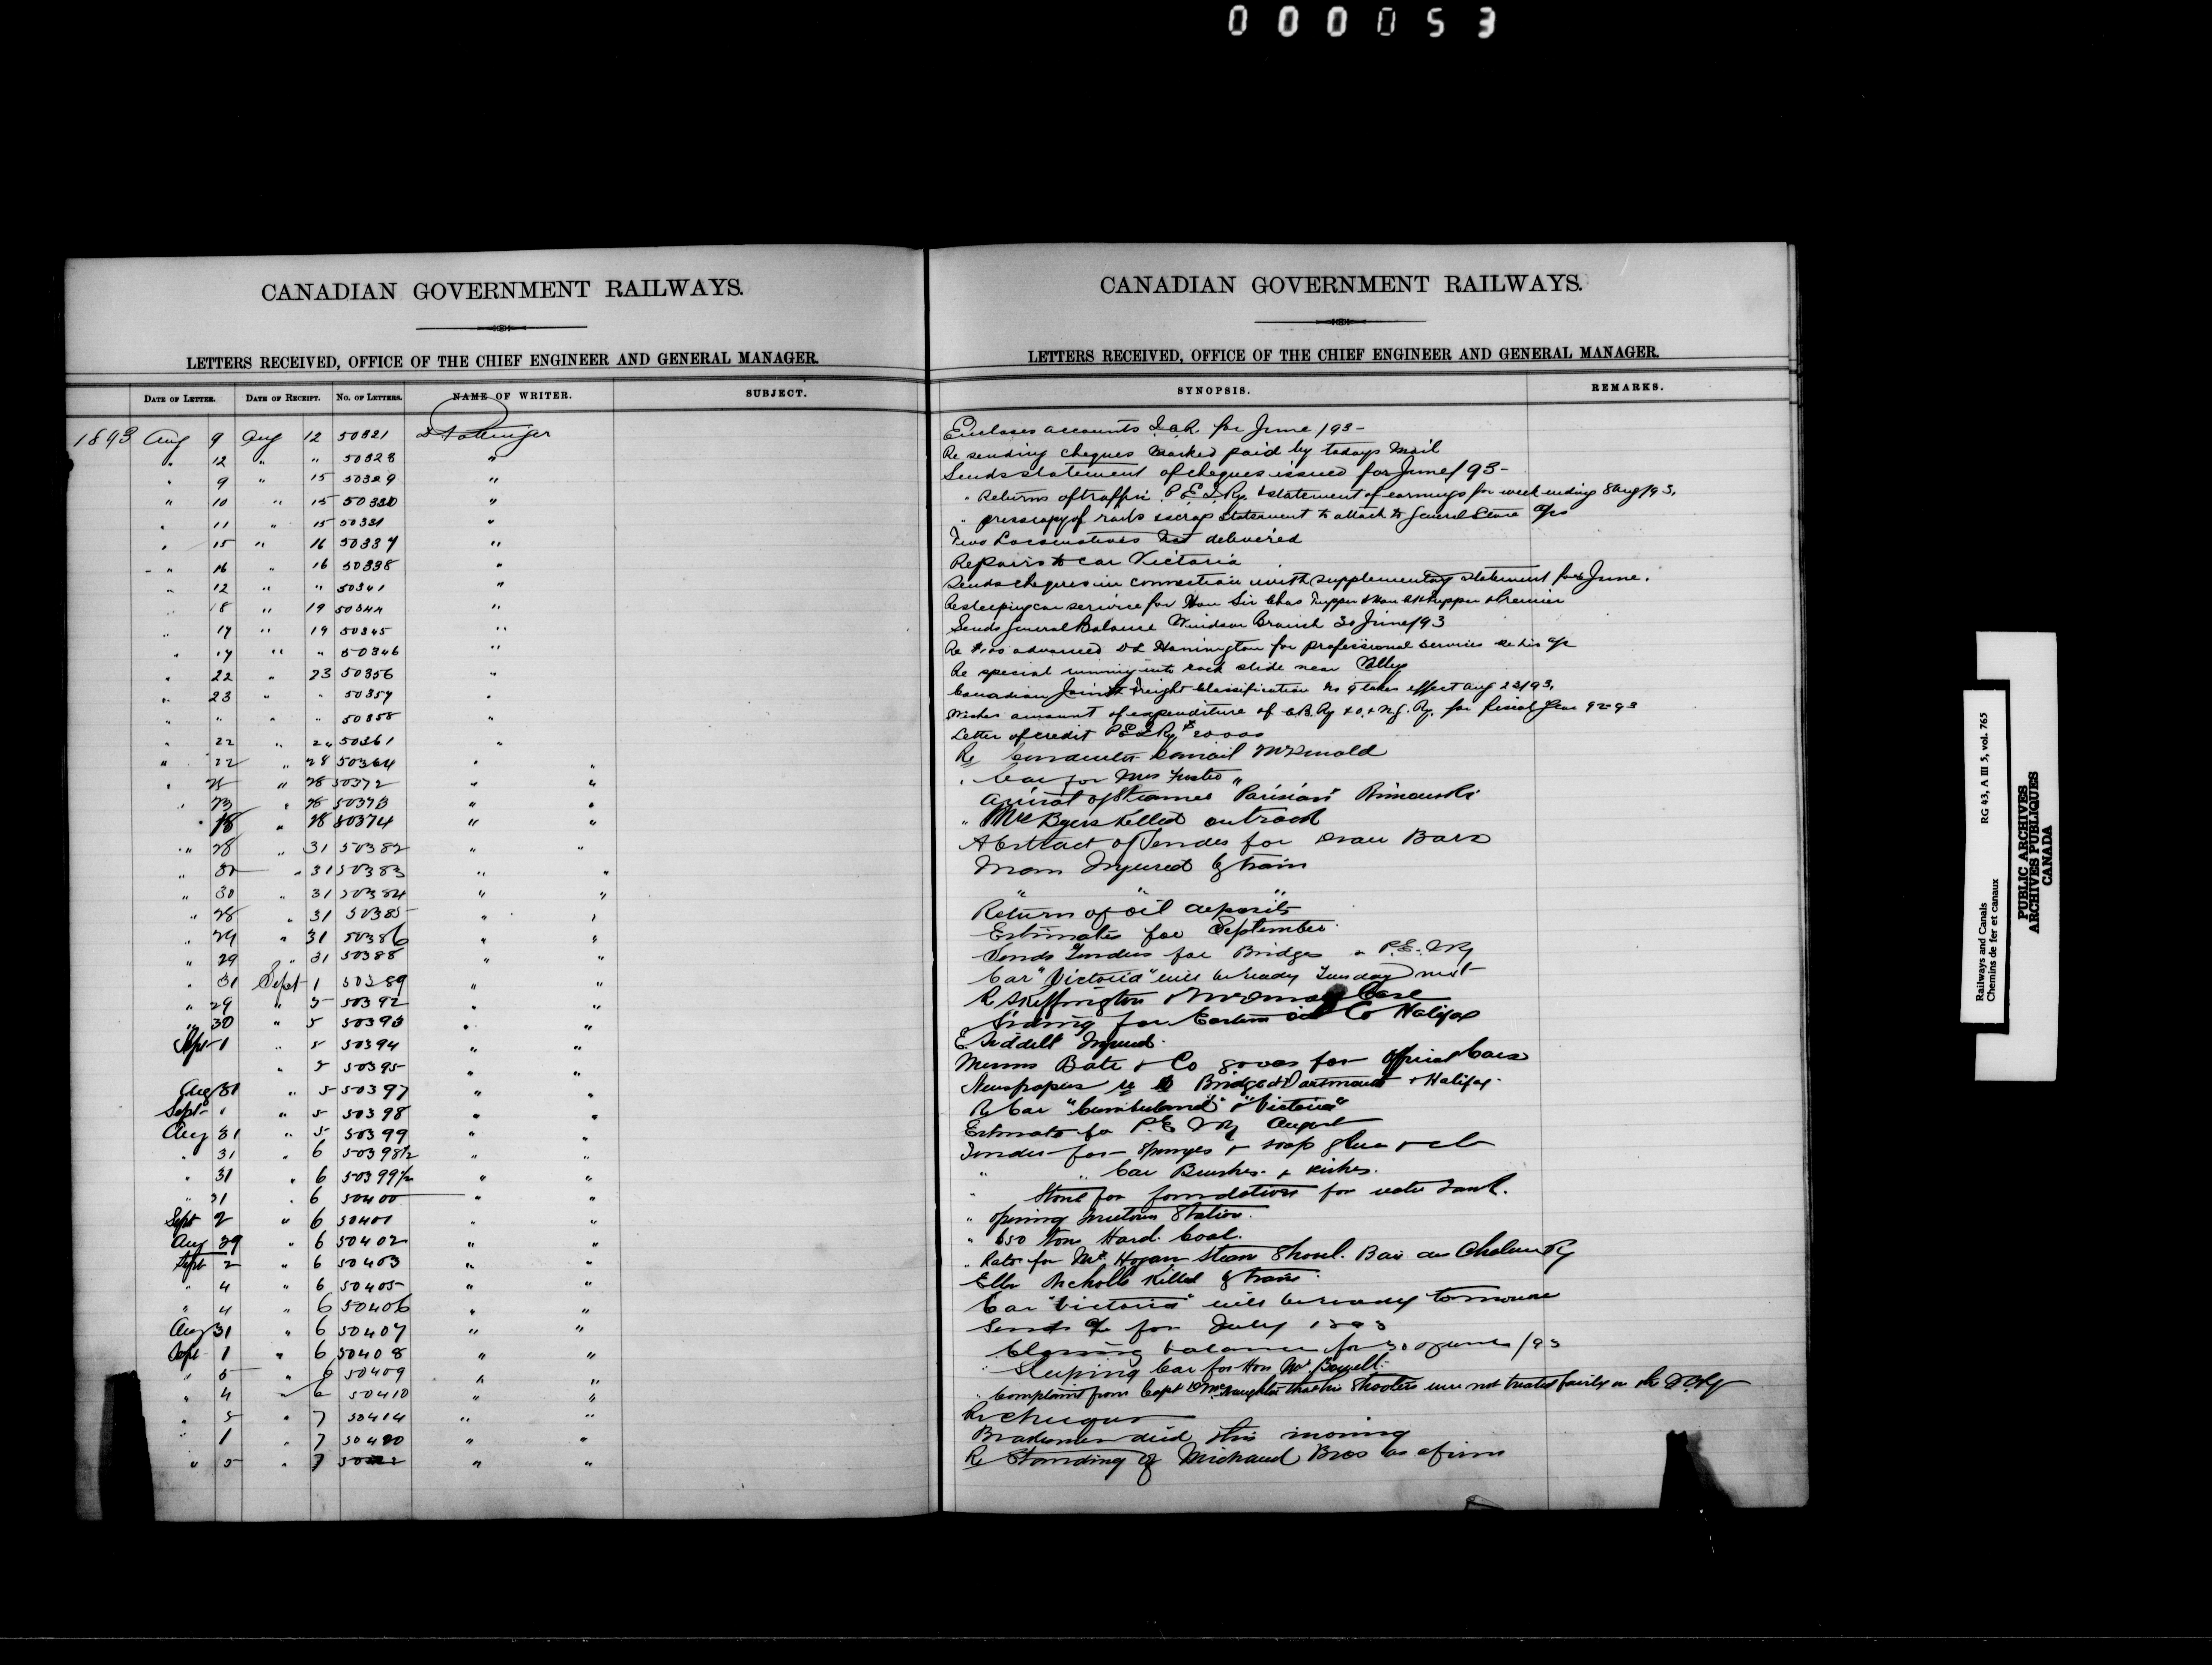 000053
CANADIAN GOVERNMENT RAILWAYS.
LETTERS RECEIVED, OFFICE OF THE CHIEF ENGINEER AND GENERAL MANAGER.
DATE OF LETTER. DATE OF RECEIPT. No. OF LETTERS. NAME OF WRITER. SUBJECT.
1893 Aug 9 Aug 12 50321 D Pottinger
" 12 " " 50328 "
" 9 " 15 50329 "
" 10 " 15 50330 "
" 11 " 15 50331 "
" 15 " 16 50337 "
" 16 " 16 50338 "
" 12 " " 50341 "
" 18 " 19 50344 "
" 17 " 19 50345 "
" 17 " " 50346 "
" 22 " 23 50356 "
" 23 " " 50357 "
" " " " 50358 "
" 22 " 24 50361 "
" 22 " 28 50364 " "
" 25 " 28 50372 " "
" 23 " 28 50373 " "
" 28 " 28 50374 " "
" 28 " 31 50382 " "
" 30 " 31 50383 " "
" 30 " 31 50384 " "
" 28 " 31 50385 " "
" 29 " 31 50386 " "
" 29 " 31 50388 " "
" 31 Sept 1 50389 " "
" 29 " 5 50392 " "
" 30 " 5 50393 " "
Sept 1 " 5 50394 " "
" 5 50395 " "
Aug 31 " 5 50397 " "
Sept 1 " 5 50398 " "
Aug 31 " 5 50399 " "
" 31 " 6 50398½ " "
" 31 " 6 50399½ " "
" 31 " 6 50400 " "
Sept 2 " 6 50401 " "
Aug 29 " 6 50402 " "
Sept 2 " 6 50403 " "
" 4 " 6 50405 " "
" 4 " 6 50406 " "
Aug 31 " 6 50407 " "
Sept 1 " 6 50408 " "
" 5 6 50409 " "
" 4 " 6 50410 " "
" 5 " 7 50414 " "
" 1 " 7 50420 " "
" 5 " 7 " "
CANADIAN GOVERNMENT RAILWAYS.
LETTERS RECEIVED, OFFICE OF THE CHIEF ENGINEER AND GENERAL MANAGER.
SYNOPSIS. REMARKS.
Encloses accounts I.C.R. for June /93-
Re sending cheques marked paid by todays mail
Sends statement of cheques issued for June/93-
" Returns of traffic P.E.I.Ry. & statement of earnings for week ending 8 Aug/93.
" press copy of rails & scrap statement to attach to General Store a/cs
Two Locomotives not delivered
Repairs to car Victoria
Sends cheques in connection with supplementary statement for June.
Re sleeping car service for Hon Sir Chas Tupper & Hon Tupper & Premier
Sends General Balance Windsor Branch 30 June/93
Re advanced Hanington for professional services re his a/c
Re special running into rock slide near
Canadian Joint Freight Classification No 9 takes effect Aug 23/93.
Wishes amount of expenditure of C.B.Ry & O. & N.G. Ry. for fiscal year 92-93
Letter of credit P.E.I.Ry $20000
Re Conductor McDonald
" Car for Mrs Foster "
Arrival of Steamer "Parisian" Rimouski
" Mc Byers killed on track
Abstract of Tender for Bars
Man Injured by train
" " "
Return of oil deposits
Estimates for September
Sends Tenders for Bridges P.E.I.Ry
Car "Victoria" will be ready Tuesday next
R Skeffington Case
Siding for Eastern Oil Co Halifax
E Siddell Injured
Messrs Bate & Co goods for Official Cars
Newspapers re Bridge at Dartmouth & Halifax.
Re Car "Cumberland" & "Victoria"
Estimate for P.E.I.Ry August
Tender for Sponges & soap glue &c
" " Car Brushes &
" Stone for foundation for water tank.
" opening Station.
" 650 tons Hard Coal.
" Rates for Mr. Hogan Steam Shovel. Baie des Chaleurs Ry
Ella Nicholls killed by train
Car "Victoria" will be ready tomorrow
Sends a/c for July 1893
Closing balance for 30 June /93
" Sleeping Car for Hon Mr. Bowell.
" Complaint from Capt McNaughton that his shooters were not treated fairly on the I.C.Ry
Re cheques
Brakeman died this morning
Re Standing of Michaud Bros as a firm
Railways and Canals RG 43, A III 5, vol. 765
Chemins de fer et canaux
PUBLIC ARCHIVES
ARCHIVES PUBLIQUES
CANADA